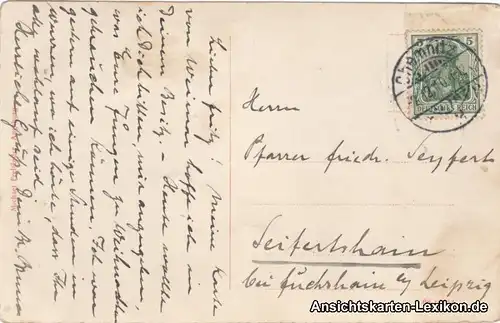 Lieber Fritz! Meine Karte
von Weimar hoff ich in
Deinem Besitz. – Heute wollte
ich Dich bitten, mir anzugeben,
was Eure Jungen zu Weihnachten
gebrauchen können. Ich war
gestern auf einige Stunden in
wo ich hörte, dass Ihr
alle wohlauf seid.
Herzliche Grüße
Herrn
Pfarrer Friedr. Seyfert
Seifertshain
bei Fuchshain b/ Leipzig
Chemnitz
5
DEUTSCHES REICH
Ansichtskarten-Lexikon.de